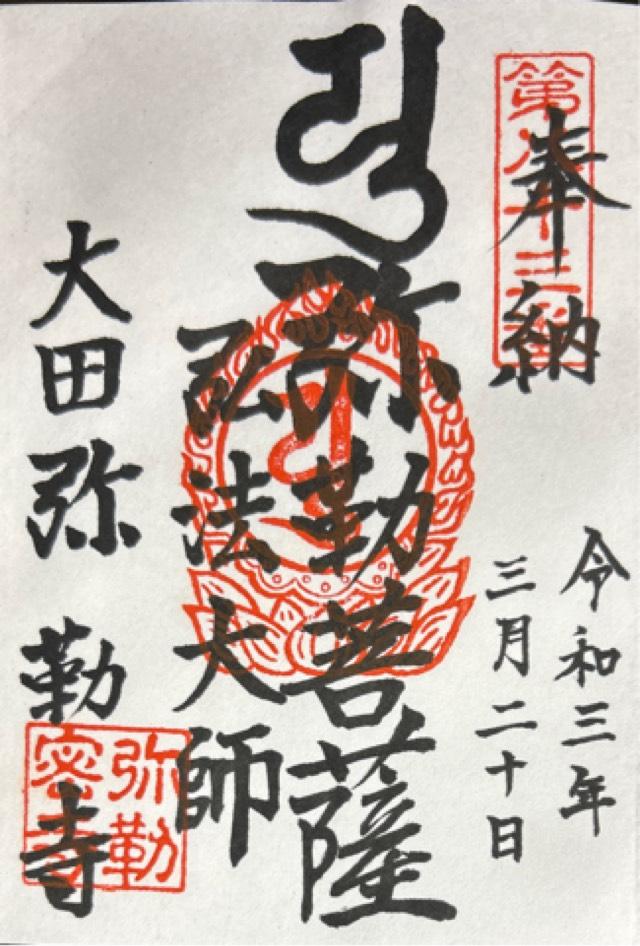 第八十三番
奉納
令和三年
三月二十日
弥勒菩薩
弘法大師
大田弥勒寺
弥勒
密寺